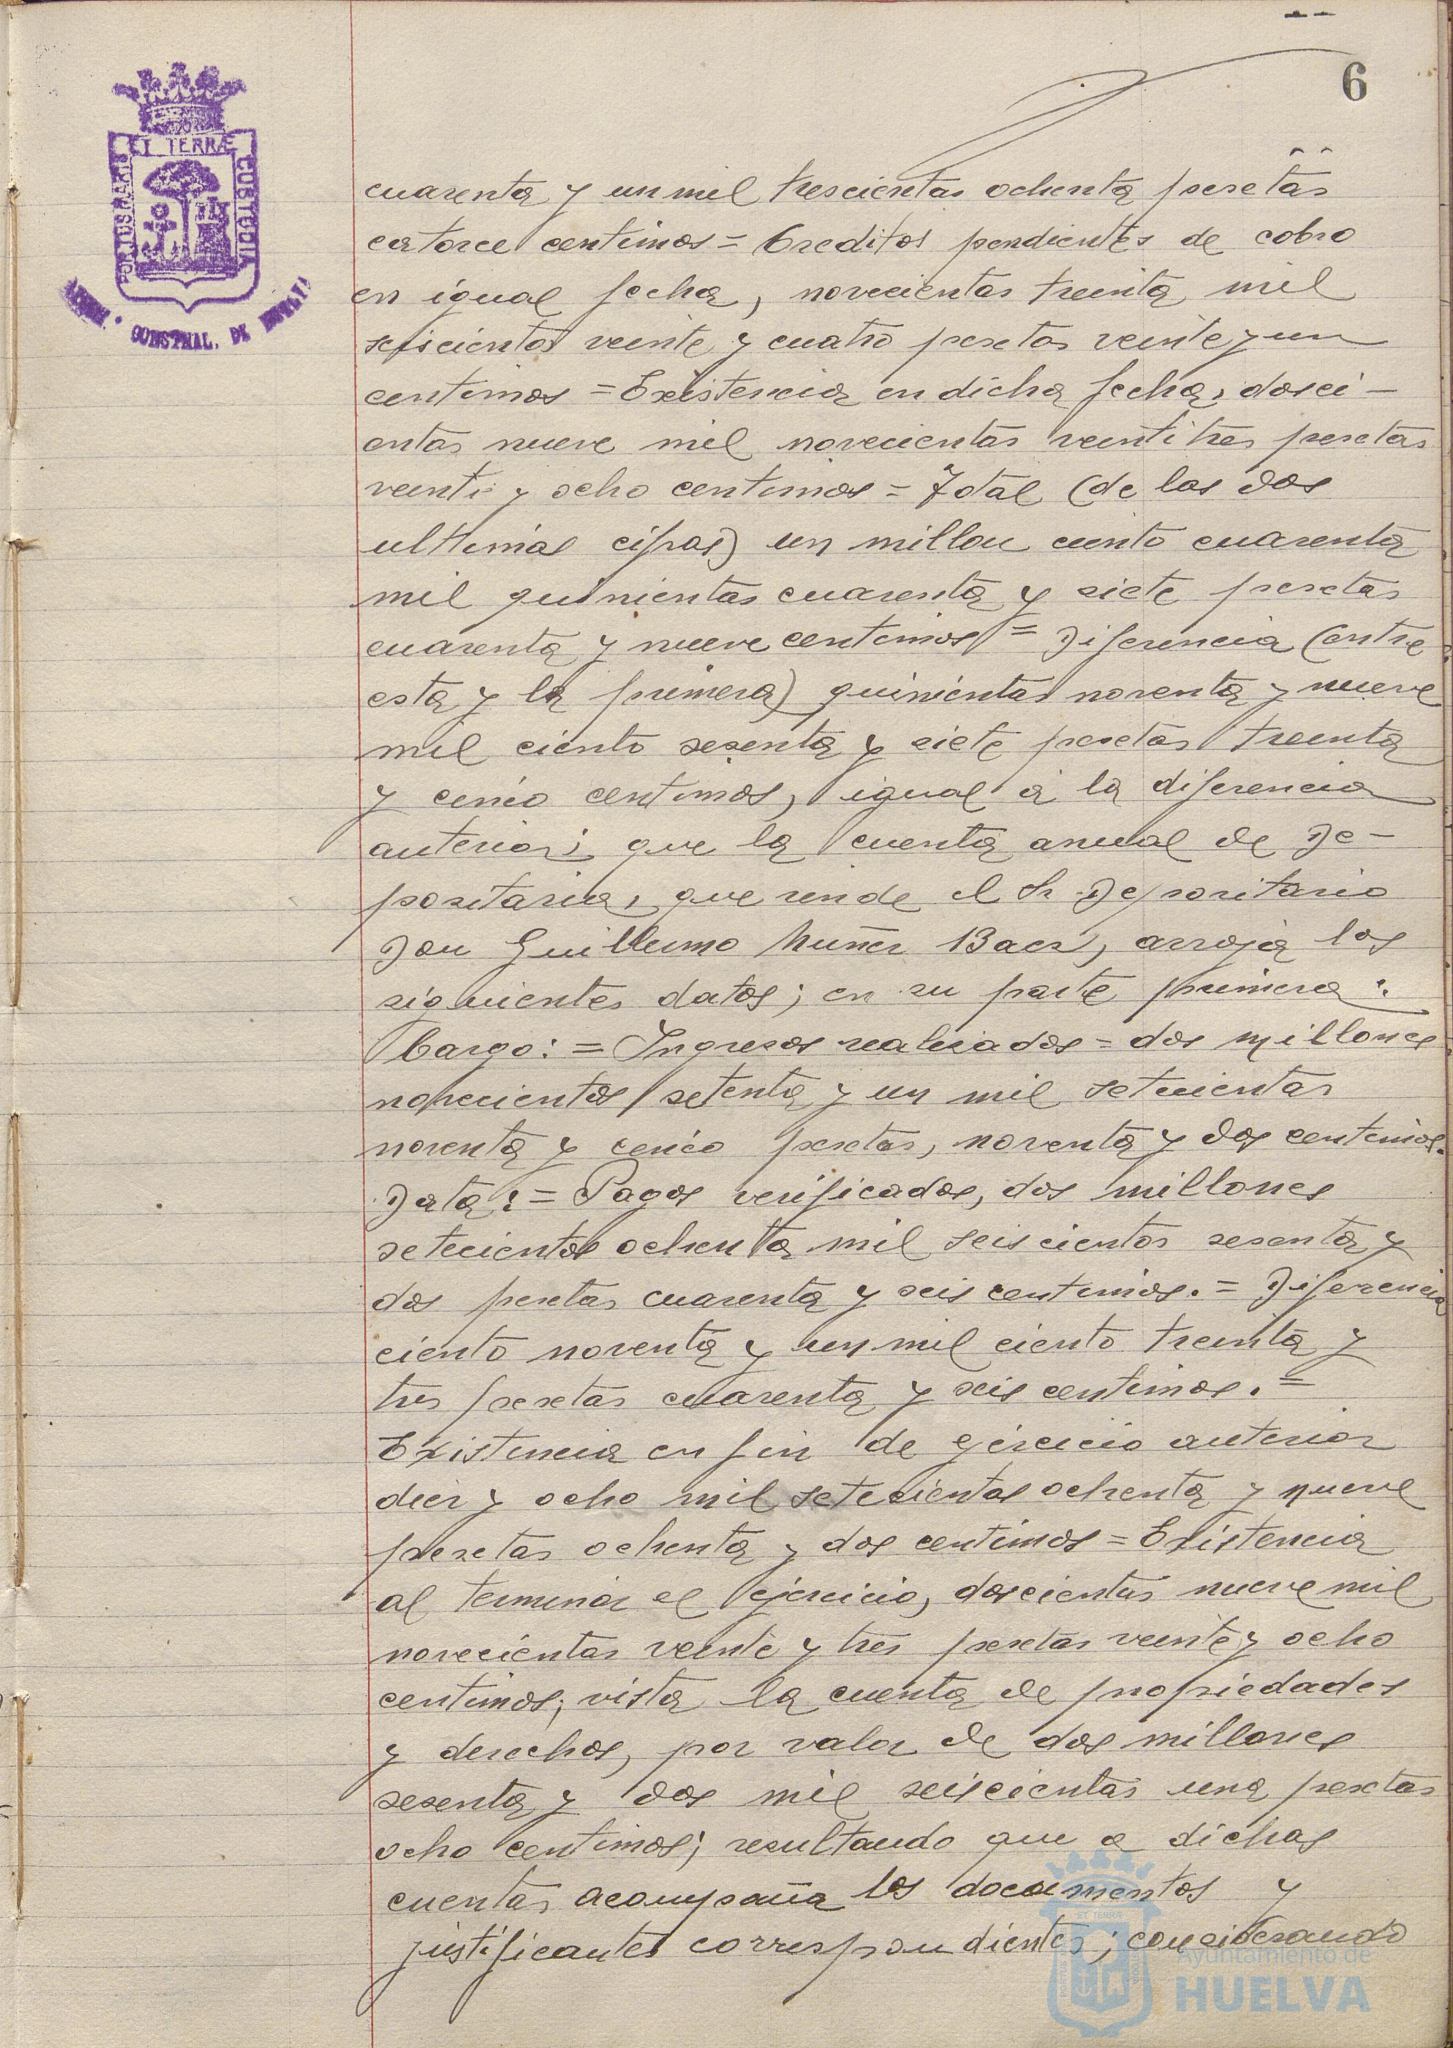 6
PORTUS MARIS ET TERRÆ CUSTODIA
CONSTNAL. DE
cuarenta y un mil trescientas ochenta pesetas
catorce centimos = Creditos pendientes de cobro
en igual fecha, novecientas treinta mil
seiscientas veinte y cuatro pesetas veinte y un
centimos = Existencia en dicha fecha, dosci-
entas nueve mil novecientas veintitres pesetas
veinte y ocho centimos = Total (de las dos
ultimas cifras) un millon ciento cuarenta
mil quinientas cuarenta y siete pesetas
cuarenta y nueve centimos = Diferencia (entre
esta y la primera) quinientas noventa y nueve
mil ciento sesenta y siete pesetas treinta
y cinco centimos, igual á la diferencia
anterior; que la cuenta anual de De-
positaria, que rinde el Sr. Depositario
Don Guillermo Nuñez Baez, arroja los
siguientes datos; en su parte primera:
Cargo: = Ingresos realizados = dos millones
novecientos setenta y un mil setecientas
noventa y cinco pesetas, noventa y dos centimos.
Data: = Pagos verificados, dos millones
setecientos ochenta mil seiscientos sesenta y
dos pesetas cuarenta y seis centimos. = Diferencia
ciento noventa y un mil ciento treinta y
tres pesetas cuarenta y seis centimos. =
Existencia en fin de ejercicio anterior
diez y ocho mil setecientas ochenta y nueve
pesetas ochenta y dos centimos = Existencia
al terminar el ejercicio, doscientas nueve mil
novecientas veinte y tres pesetas veinte y ocho
centimos; vista la cuenta de propiedades
y derechos, por valor de dos millones
sesenta y dos mil seiscientas una pesetas
ocho centimos; resultando que a dichas
cuentas acompaña los documentos y
justificantes correspondientes; considerando
Ayuntamiento de
HUELVA